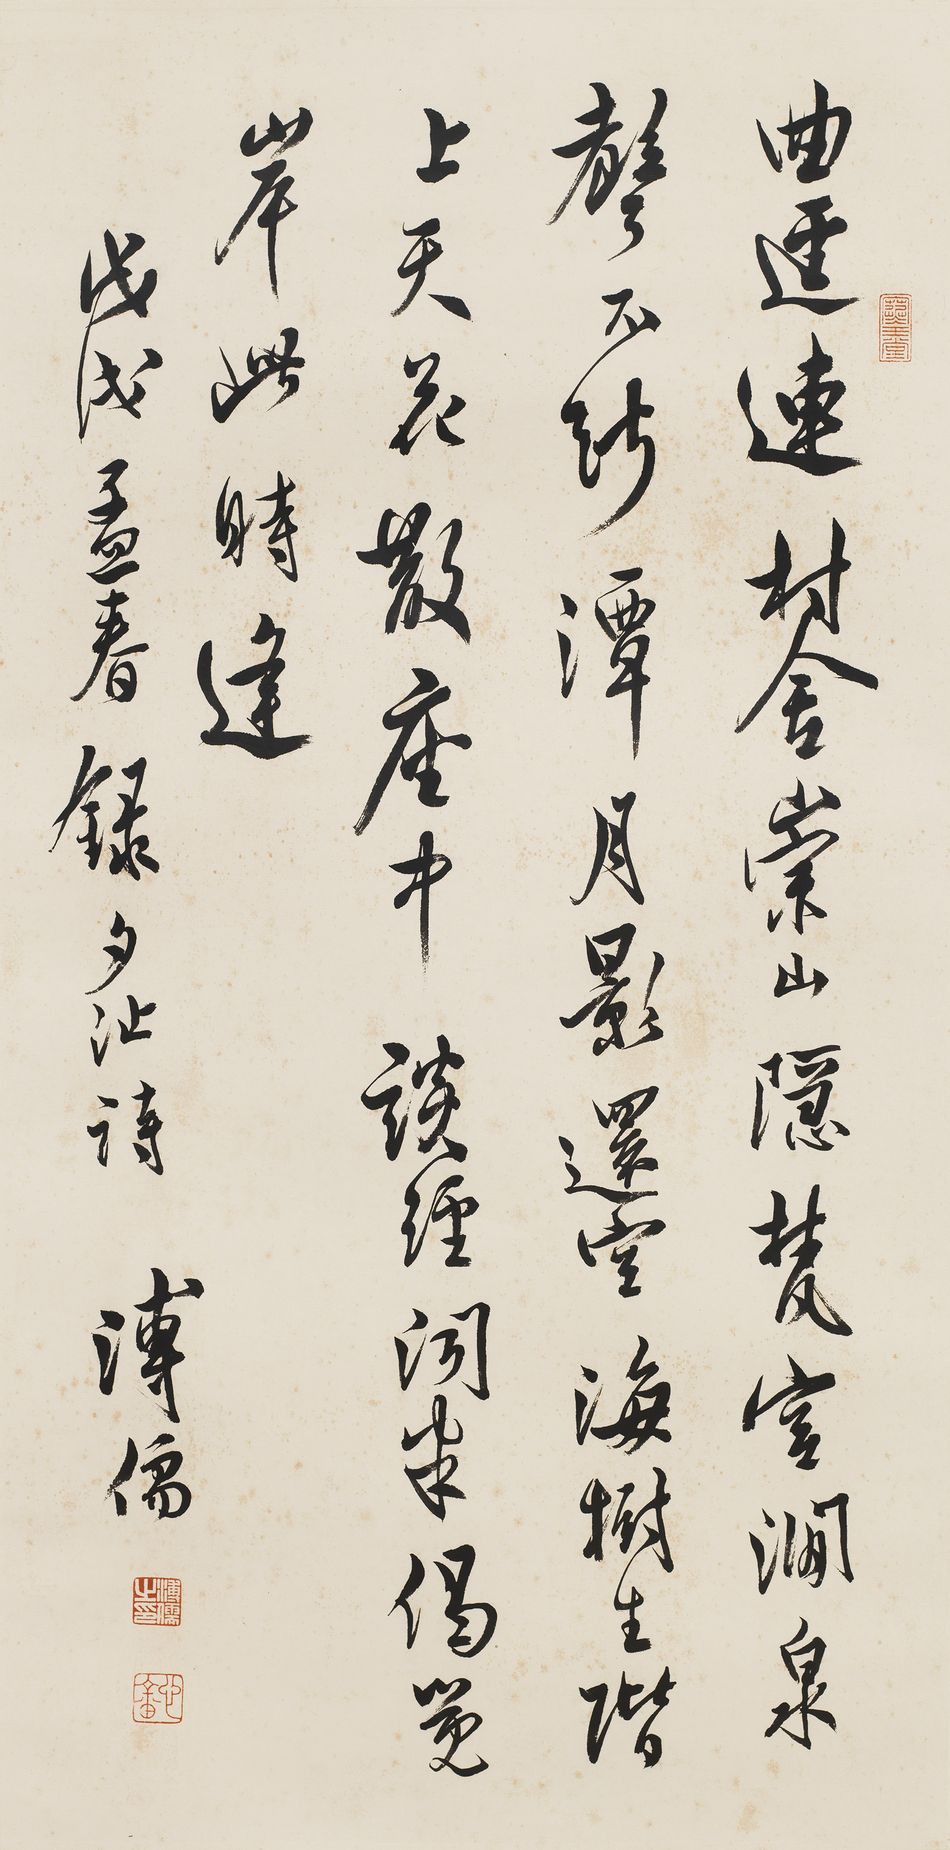 曲逕連村舍崇山隱梵宮澗泉
聲不斷潭月影還空海樹生階
上天花散座中談經聞半偈覺
岸此時逢
戊戌孟春錄夕沚詩 溥儒
溥儒之印
心畬